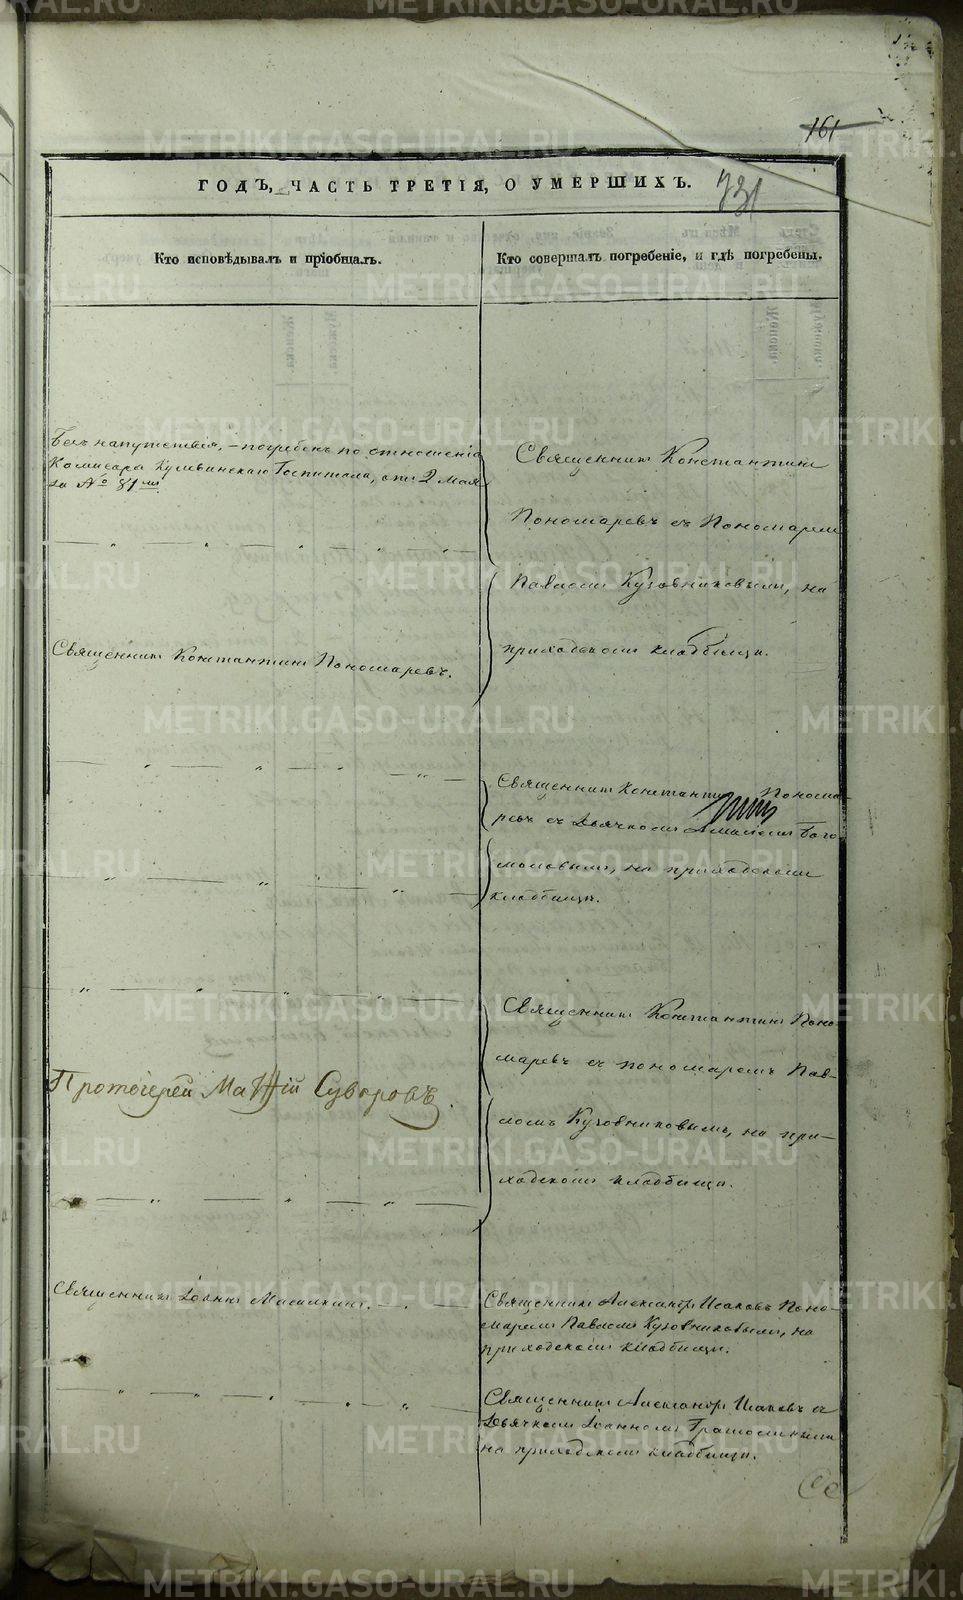 161
ГОДЪ, ЧАСТЬ ТРЕТІЯ, О УМЕРШИХЪ. 731
Кто исповѣдывалъ и пріобщалъ.
Кто совершалъ погребеніе, и гдѣ погребены.
Безъ напутствія, – погребенъ по отношенію
Комисара Кушвинскаго Госпиталя, отъ 2 Мая
за № 81мъ
Священникъ Константинъ Пономаревъ.
Протоіерей Матѳій Суворовъ.
Священникъ Іоаннъ
Священникъ Константинъ
Пономаревъ съ Пономаремъ
Павломъ Кузовниковымъ, на
приходскомъ кладбищѣ.
Священникъ Константинъ Понома-
ревъ съ Дьячкомъ Бого-
моловымъ, на приходскомъ
кладбищѣ.
Священникъ Константинъ Поно-
маревъ съ пономаремъ Пав-
ломъ Кузовниковымъ, на при-
ходскомъ кладбищѣ.
Священникъ Александръ Исаковъ Поно-
маремъ Павломъ Кузовниковымъ, на
приходскомъ кладбищѣ.
Священникъ Александръ Исаковъ съ
Дьячкомъ Іоанномъ
на приходскомъ кладбищѣ.
METRIKI.GASO-URAL.RU